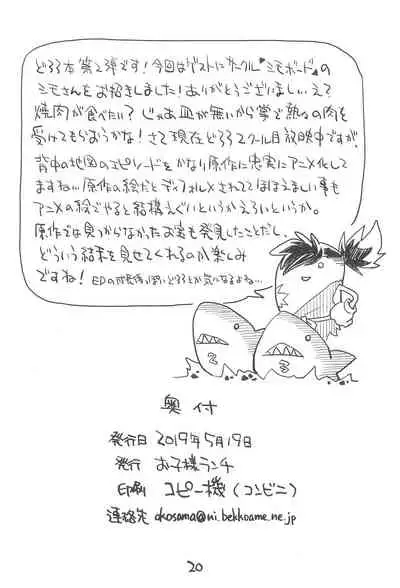 どろろ本第2弾です！今回はゲストにサークル"シモボード"の
シモさんをお招きしました！ありがとうございましい、え？
焼肉が食べたい？じゃあ皿が無いから掌で熱々の肉を
受けてもらおうかな！さて現在どろろ2クール目放映中ですが、
背中の地図のエピソードをかなり原作に忠実にアニメ化して
ますね…原作の絵だとディフォルメされててほほえましい事も
アニメの絵でやると結構えぐいというかえろいというか。
原作では見つからなかったお宝も発見したことだし、
どういう結果を見せてくれるのか楽しみ
ですね！EDの
どろろとか気になるよね…
2
3
奥付
発行日 2019年5月19日
発行 お子様ランチ
印刷 コピー機（コンビニ）
連絡先 okosama@ni.bekkoame.ne.jp
20